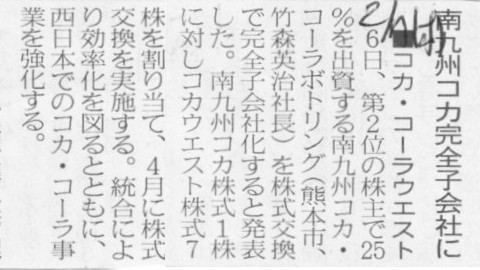 南九州コカ完全子会社に
■コカ・コーラウエスト
6日、第2位の株主で25
%を出資する南九州コカ・
コーラボトリング(熊本市、
竹森英治社長)を株式交換
で完全子会社化すると発表
した。南九州コカ株式1株
に対しコカウエスト株式7
株を割り当て、4月に株式
交換を実施する。統合によ
り効率化を図るとともに、
西日本でのコカ・コーラ事
業を強化する。